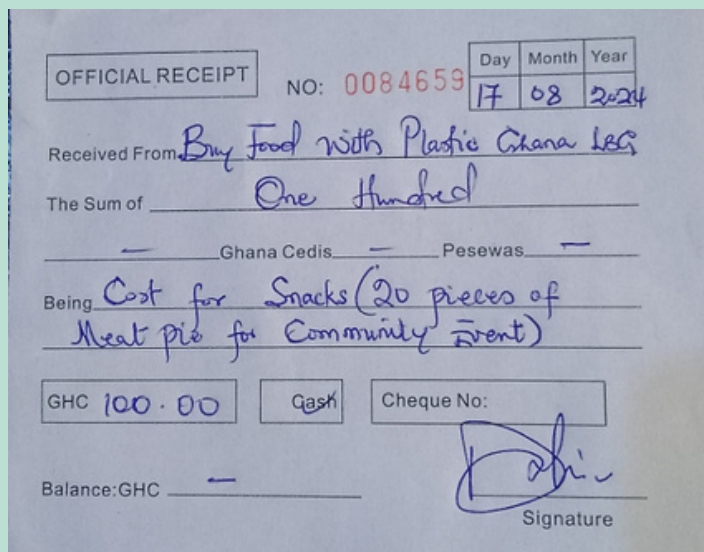 OFFICIAL RECEIPT NO: 0084659 Day Month Year
17 08 2024
Received From Buy Food with Plastic Ghana LBG
The Sum of One Hundred
— Ghana Cedis — Pesewas —
Being Cost for Snacks (20 pieces of
Meat pie for Community Event)
GHC 100.00 Cash Cheque No:
Balance:GHC —
Signature